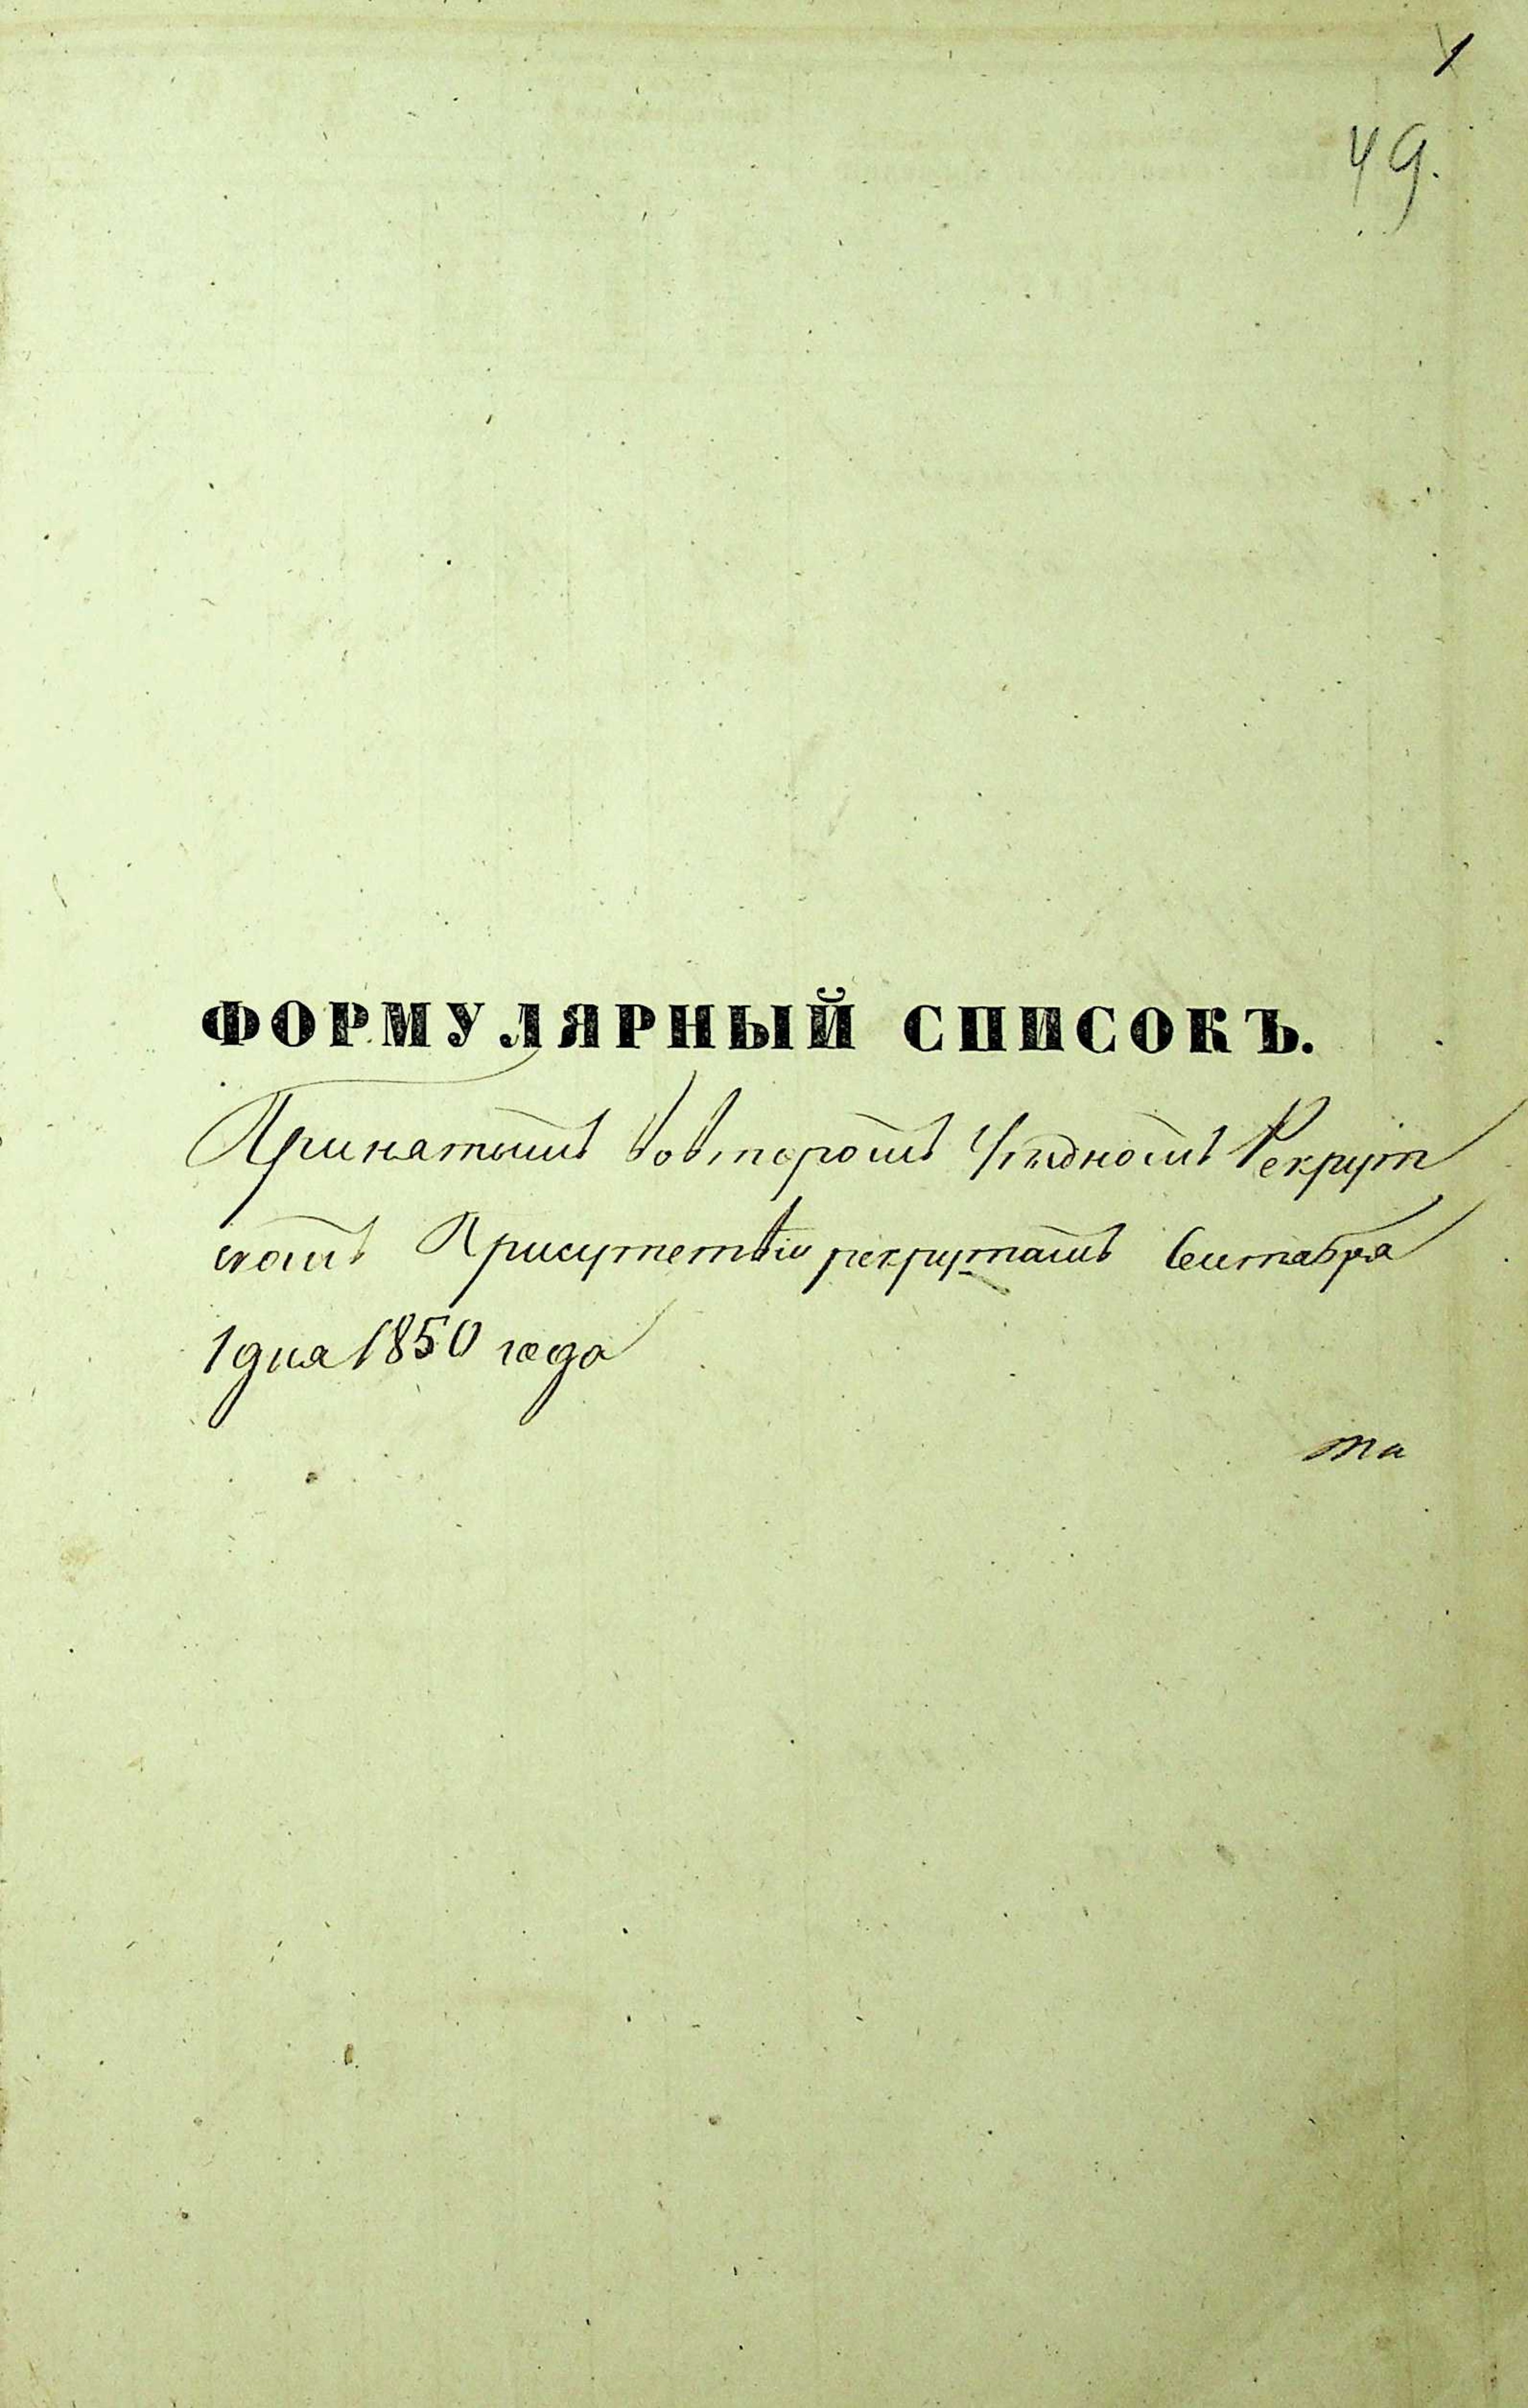 1
49.
ФОРМУЛЯРНЫЙ СПИСОКЪ.
Принятымъ вовторомъ Уѣздномъ Рекрут
скомъ Присутствіи рекрутамъ Сентября
1 дня 1850 года